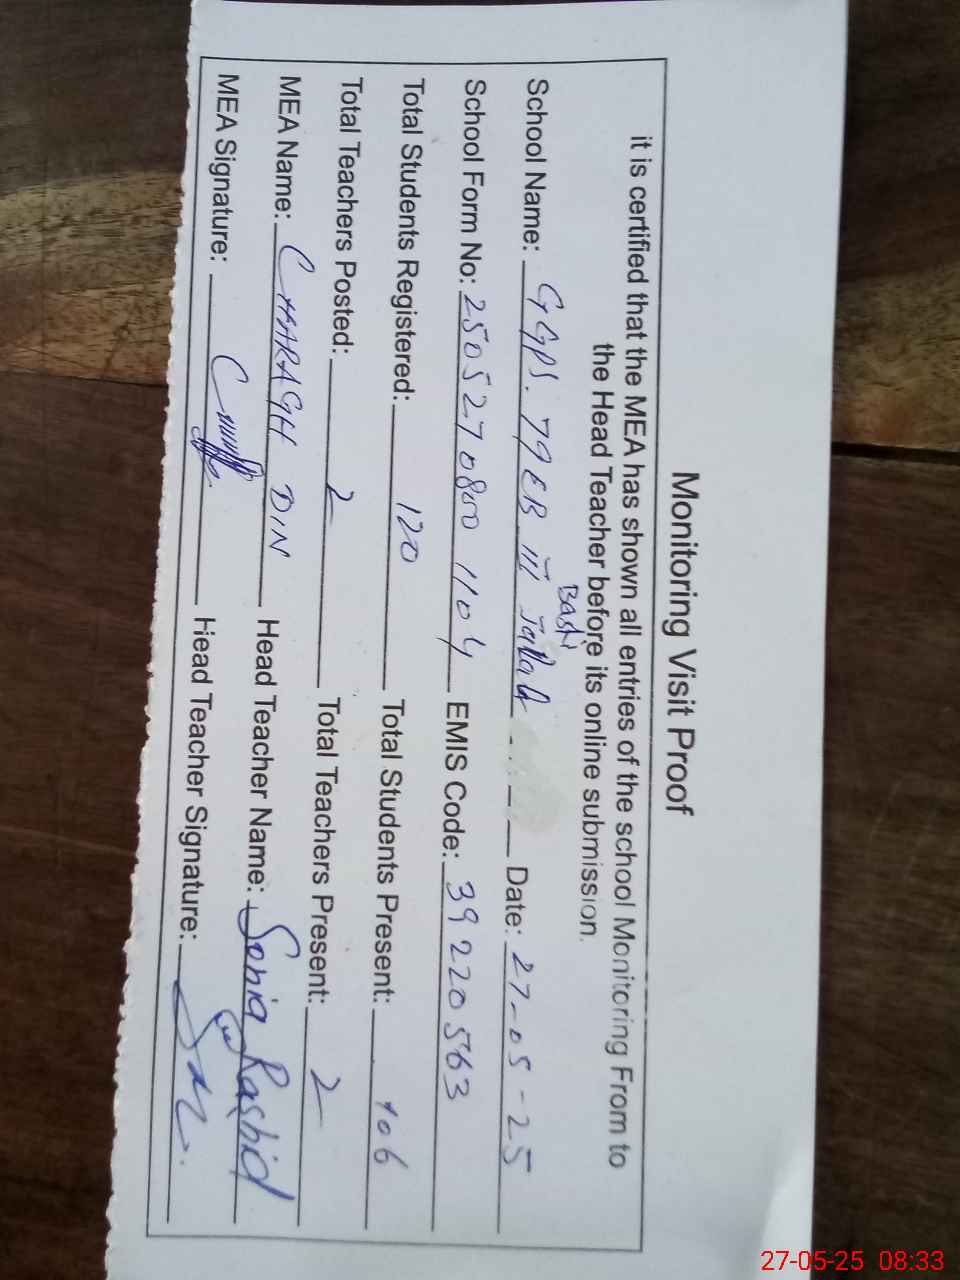 Monitoring Visit Proof
it is certified that the MEA has shown all entries of the school Monitoring From to
the Head Teacher before its online submission.
School Name: GGPS. 79 EB III Jallah Basti Date: 27-05-25
School Form No: 2505270800 1104 EMIS Code: 39220563
Total Students Registered: 120 Total Students Present: 106
Total Teachers Posted: 2 Total Teachers Present: 2
MEA Name: CHARAGH DIN Head Teacher Name: Sonia Rashid
MEA Signature: Head Teacher Signature:
27-05-25 08:33